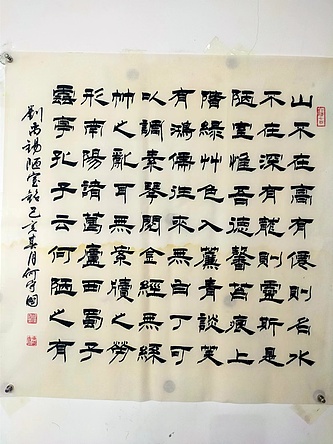 山不在高有僊則名水
不在深有龍則靈斯是
陋室惟吾德馨苔痕上
階綠艸色入簾青談笑
有鴻儒往來無白丁可
以調素琴閱金經無絲
竹之亂耳無案牘之勞
形南陽諸葛廬西蜀子
雲亭孔子云何陋之有
劉禹錫陋室銘己亥月何國